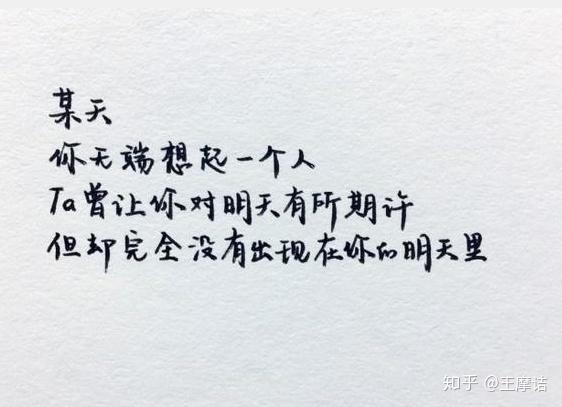 某天
你无端想起一个人
Ta曾让你对明天有所期许
但却完全没有出现在你的明天里
知乎 @王摩诘